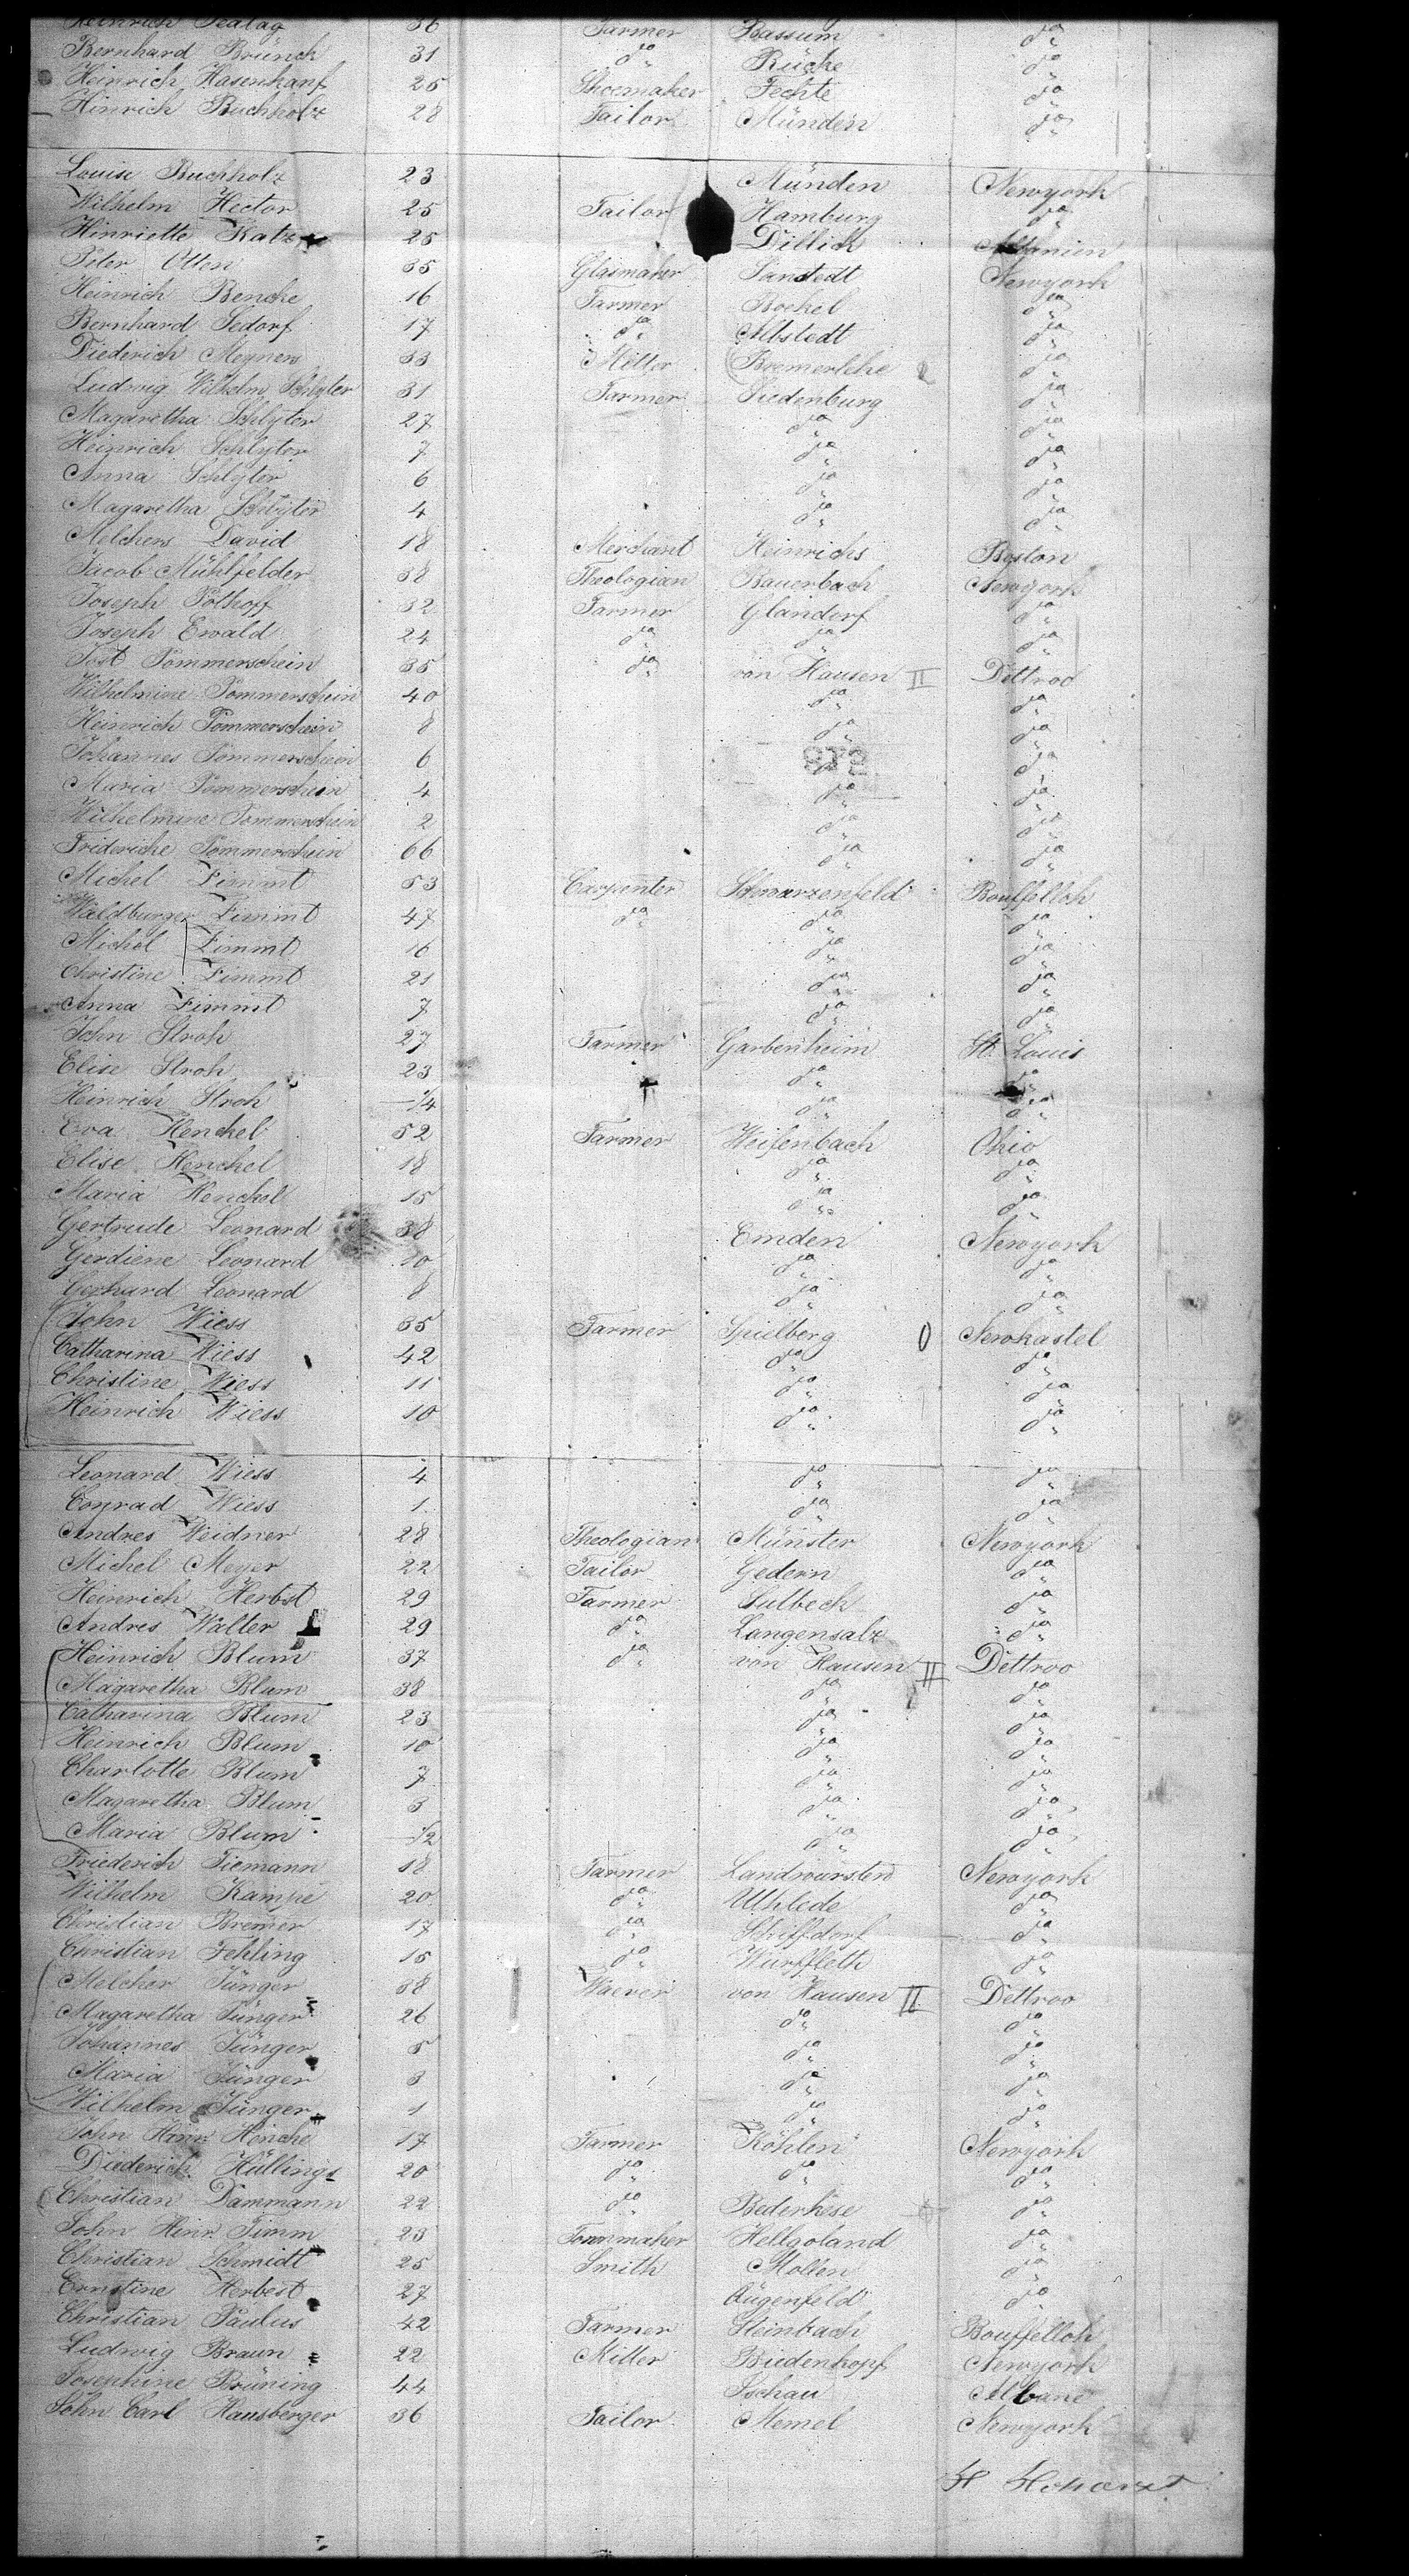 Heinrich Sealag 36 Farmer Bassum do
Bernhard Brünch 31 do Rüche do
Heinrich Hasenkanf 25 Shoemaker Fechte do
Hinrich Buchholz 28 Tailor Münden do
Louise Buchholz 23 Münden Newyork
Wilhelm Hector 25 Tailor Hamburg do
Hinriette Katz 25 Dillich
Peter Otten 35 Glasmaker Sandstedt Newyork
Heinrich Bencke 16 Farmer Bockel do
Bernhard Sedorf 17 do Albstedt do
Diederich Meyners 33 Miller Bremerlehe do
Ludwig Wilhelm Schlyter 31 Farmer Siedenburg do
Magaretha Schlyter 27 do do
Heinrich Schlyter 7 do do
Anna Schlyter 6 do do
Magaretha Schlyter 4 do do
Melchers David 18 Merchant Heinrichs Boston
Jacob Mühlfelder 38 Theologian Bauerbach Newyork
Joseph Pölhoff 32 Farmer Glandorf do
Joseph Ewald 24 do do do
Jost Pommerschein 35 do von Hausen II Dettroo
Wilhelmine Pommerschein 40 do do
Heinrich Pommerschein 8 do do
Johannes Pommerschein 6 do do
Maria Pommerschein 4 do do
Wilhelmine Pommerschein 2 do do
Frideriche Pommerschein 66 do do
Michel Zimmt 53 Carpenter Schwarzenfeld Bouffelloh
Waldburger Zimmt 47 do do do
Michel Zimmt 16 do do
Christine Zimmt 21 do do
Anna Zimmt 7 do do
John Stroh 27 Farmer Garbenheim St. Louis
Elise Stroh 23 do do
Heinrich Stroh 1/4 do do
Eva Henckel 52 Farmer Weifenbach Ohio
Elise Henckel 18 do do
Maria Henckel 15 do do
Gertrude Leonard 38 Emden Newyork
Gerdiene Leonard 10 do do
Gerhard Leonard 8 do do
John Wiess 35 Farmer Spielberg 0 Newkastel
Catharina Wiess 42 do do
Christine Wiess 11 do do
Heinrich Wiess 10 do do
Leonard Wiess 4 do do
Conrad Wiess 1 do do
Andres Weidner 28 Theologian Münster Newyork
Michel Meyer 22 Tailor Gedern do
Heinrich Herbst 29 Farmer Sulbeck do
Andres Walter 29 do Langensalz do
Heinrich Blum 37 do von Hausen II Dettroo
Magaretha Blum 38 do do
Catharina Blum 23 do do
Heinrich Blum 10 do do
Charlotte Blum 7 do do
Magaretha Blum 3 do do
Maria Blum 1/2 do do
Friederich Tiemann 18 Farmer Landwursten Newyork
Wilhelm Kampe 20 do Uthlede do
Christian Bremer 17 do Schiffdorf do
Christian Fehling 15 do Wurffleth do
Melcher Jünger 38 Waever von Hausen II Dettroo
Magaretha Jünger 26 do do
Johannes Jünger 5 do do
Maria Jünger 3 do do
Wilhelm Jünger 1 do do
John Hinr. Hincke 17 Farmer Köhlen Newyork
Diederich Hüllings 20 do do do
Christian Dammann 22 do Bederkese do
John Hinr. Timm 23 Hellgoland do
Christian Schmidt 25 Smith Mollen do
Ernstine Herbest 27 Augenfeld do
Christian Paulus 42 Farmer Steinbach Bouffelloh
Ludwig Braun 22 Miller Biedenkopf Newyork
Josephine Brüning 44 Ischau Albane
John Carl Hausberger 36 Tailor Memel Newyork